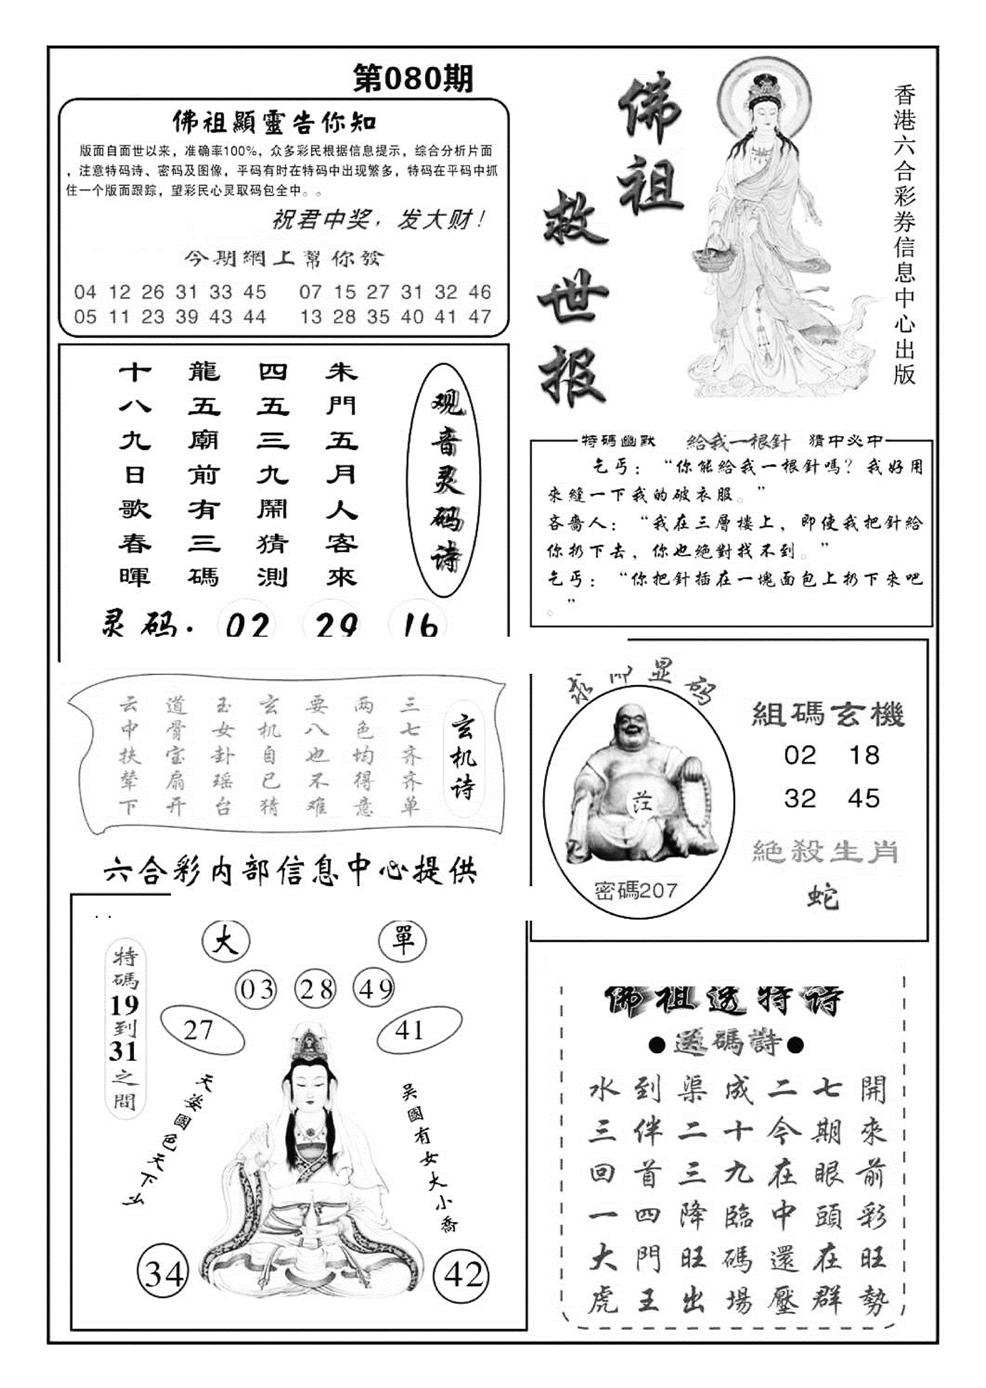 第080期
佛祖顯靈告你知
版面自面世以来，准确率100%，众多彩民根据信息提示，综合分析片面
，注意特码诗、密码及图像，平码有时在特码中出现繁多，特码在平码中抓
住一个版面跟踪，望彩民心灵取码包全中。。
祝君中奖，发大财！
今期網上幫你發
04 12 26 31 33 45 07 15 27 31 32 46
05 11 23 39 43 44 13 28 35 40 41 47
佛祖
救世报
香港六合彩券信息中心出版
观音灵码诗
朱門五月人客來
四五三九鬧猜測
龍五廟前有三碼
十八九日歌春暉
灵码. 02 29 16
特碼幽默 給我一根針 猜中必中
乞丐：“你能給我一根針嗎？我好用
來縫一下我的破衣服。”
吝嗇人：“我在三層樓上，即使我把針給
你扔下去，你也絕對找不到。”
乞丐：“你把針插在一塊面包上扔下來吧
。”
玄机诗
三七齐齐单
两色均得意
要八也不难
玄机自己猜
玉女卦瑶台
道骨宝扇开
云中扶辇下
六合彩内部信息中心提供
显码
密碼207
組碼玄機
02 18
32 45
絕殺生肖
蛇
. .
特碼19到31之間
大 單
03 28 49
27 41
天姿國色天下
吴國有女大小喬
34 42
佛祖送特诗
●送碼詩●
開來前彩旺勢
七期眼頭在群
二今在中還壓
成十九臨碼場
渠二三降旺出
到伴首四門王
水三回一大虎